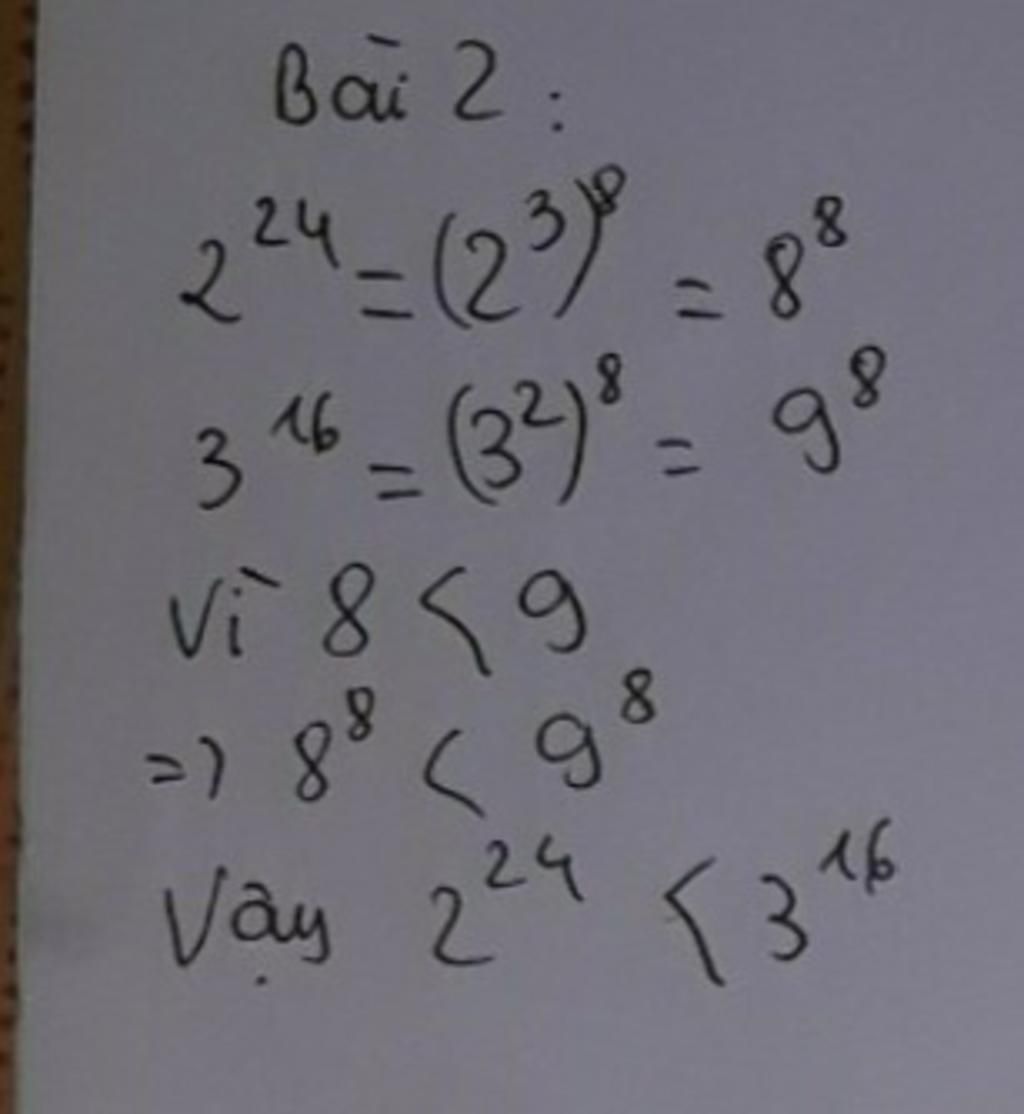 Bài 2 :
2^24 = (2^3)^8 = 8^8
3^16 = (3^2)^8 = 9^8
Vì 8 < 9
=> 8^8 < 9^8
Vậy 2^24 < 3^16